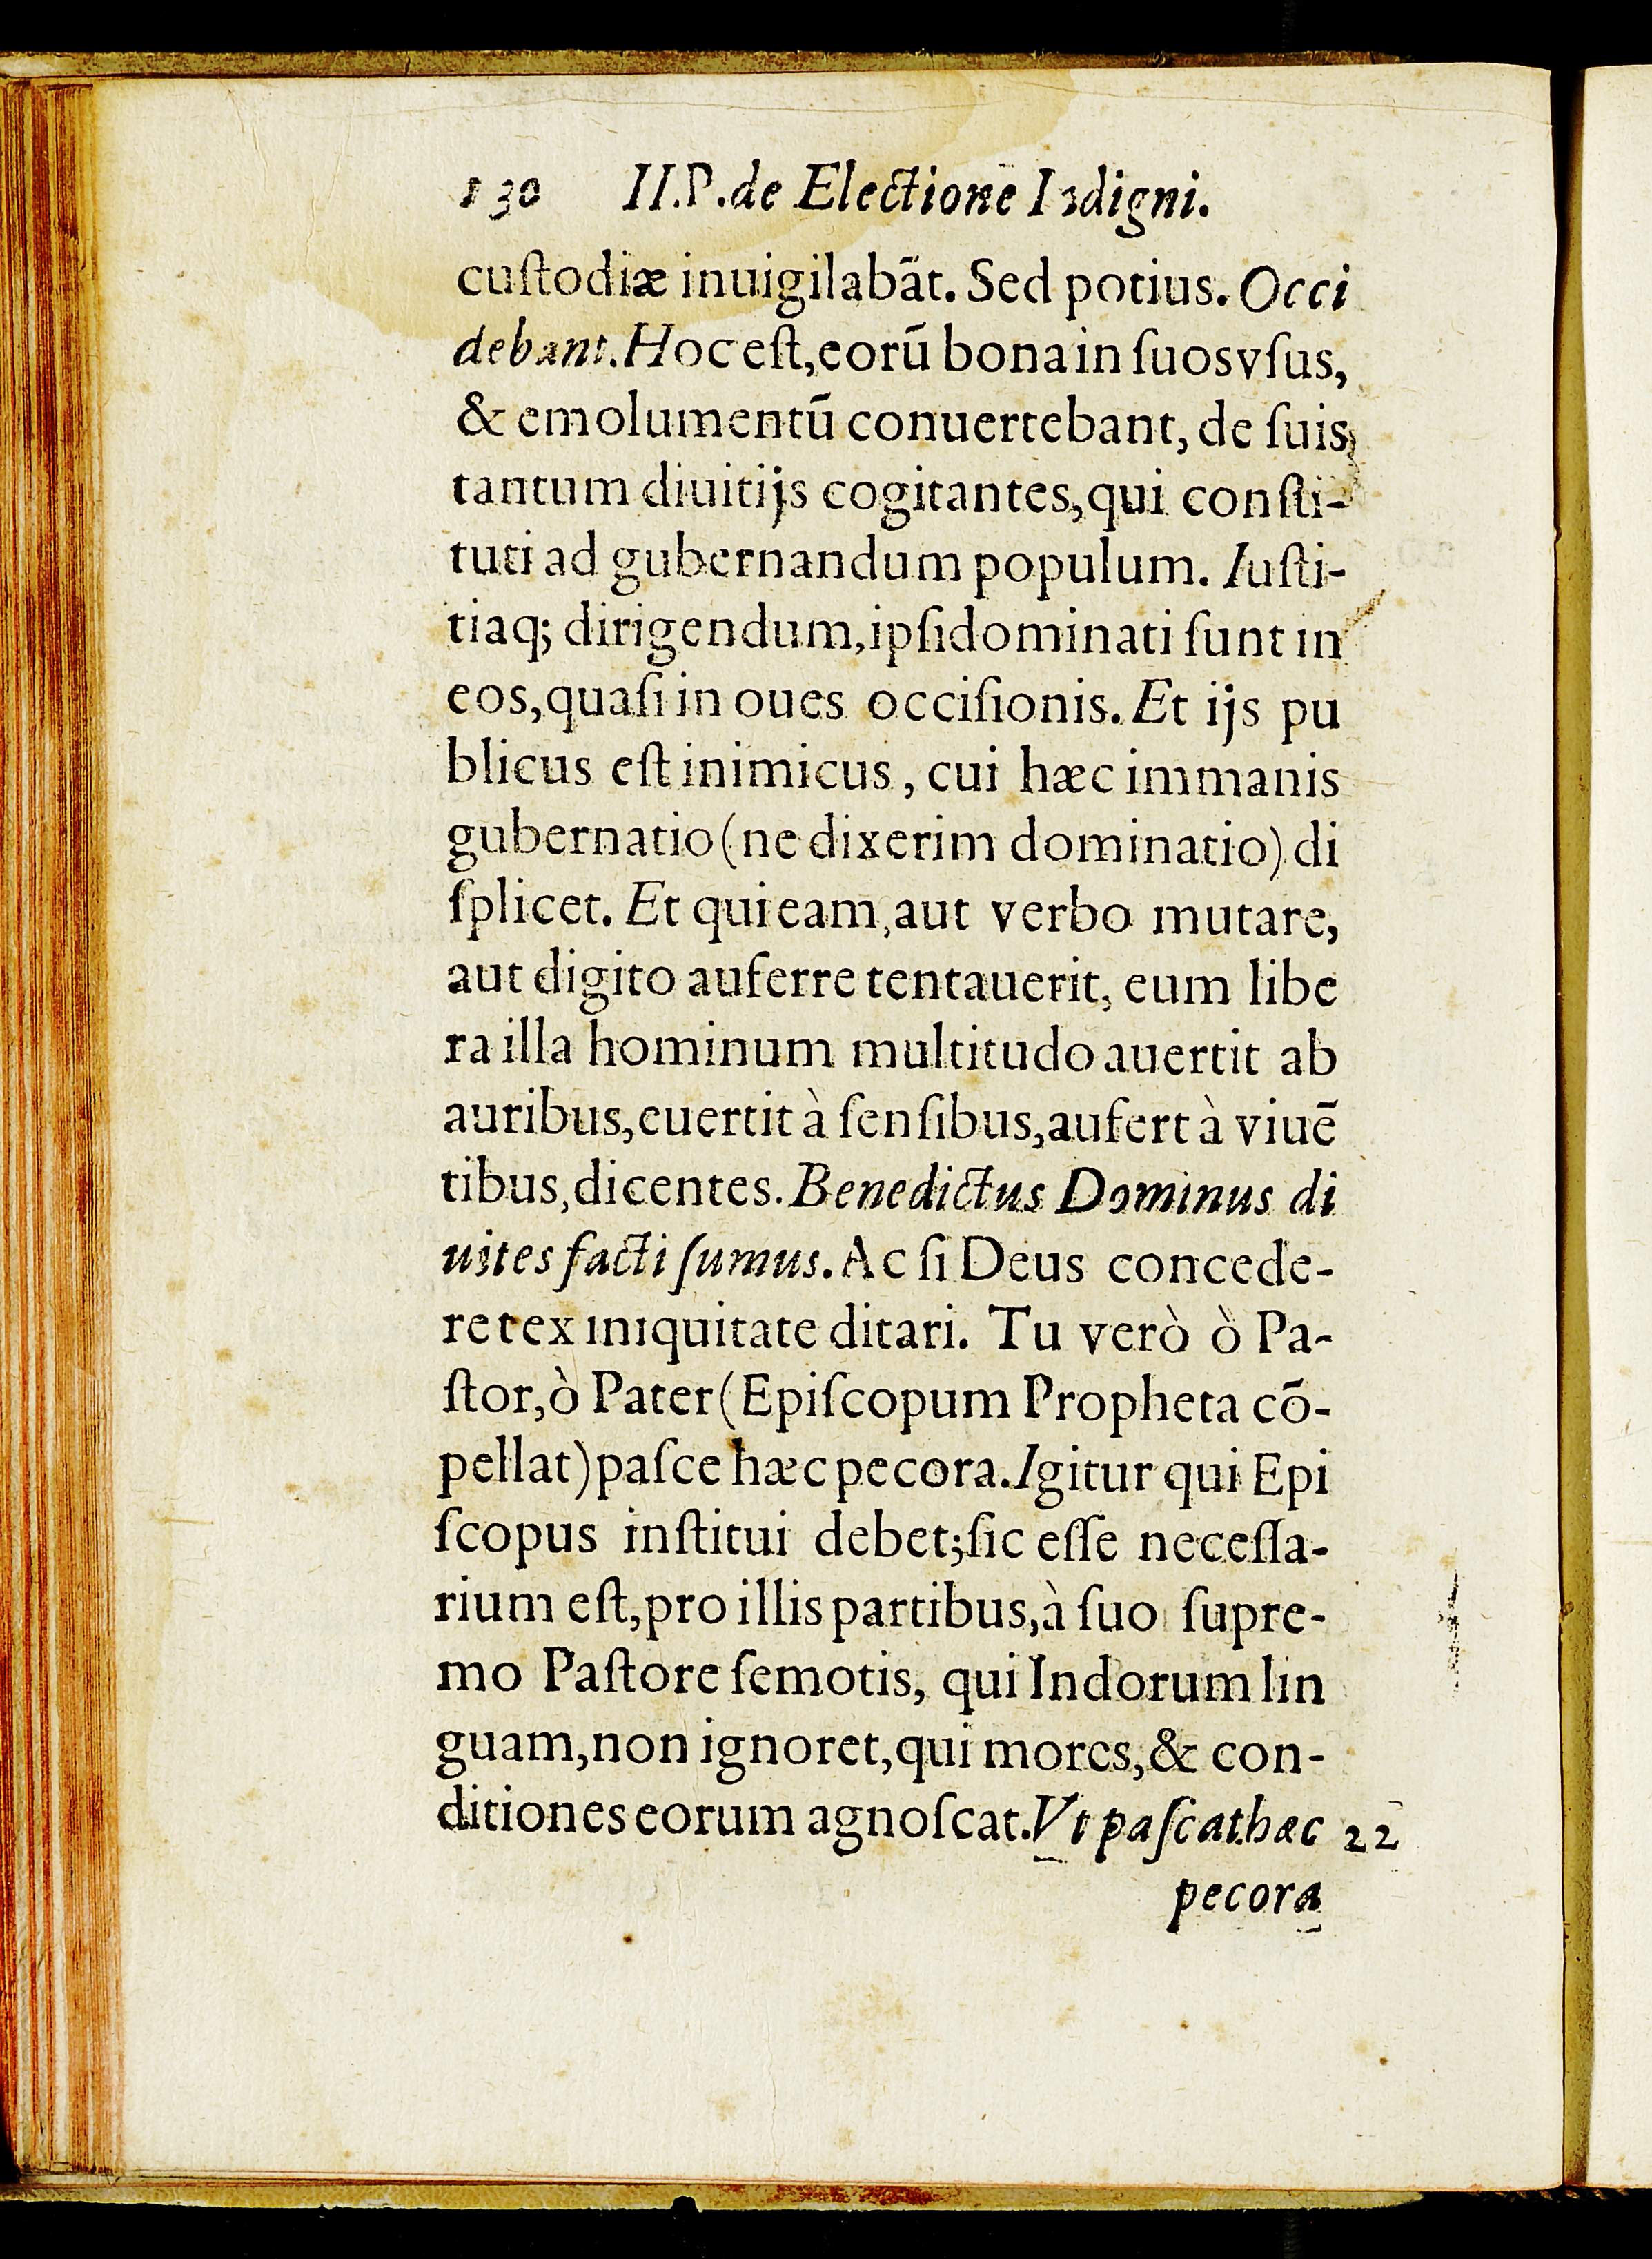 130 II.P.de Electione Indigni.
custodiæ inuigilabãt. Sed potius. Occi
debant. Hoc est, eorũ bona in suos vsus,
& emolumentũ conuertebant, de suis
tantum diuitijs cogitantes, qui consti-
tuti ad gubernandum populum. Iusti-
tiaq; dirigendum, ipsi dominati sunt in
eos, quasi in oues occisionis. Et ijs pu
blicus est inimicus, cui hæc immanis
gubernatio (ne dixerim dominatio) di
splicet. Et qui eam, aut verbo mutare,
aut digito auferre tentauerit, eum libe
ra illa hominum multitudo auertit ab
auribus, euertit à sensibus, aufert à viuẽ
tibus, dicentes. Benedictus Dominus di
uites facti sumus. Ac si Deus concede-
ret ex iniquitate ditari. Tu verò ò Pa-
stor, ò Pater (Episcopum Propheta cõ-
pellat) pasce hæc pecora. Igitur qui Epi
scopus institui debet; sic esse necessa-
rium est, pro illis partibus, à suo supre-
mo Pastore semotis, qui Indorum lin
guam, non ignoret, qui mores, & con-
ditiones eorum agnoscat. Vt pascat hæc 22
pecora